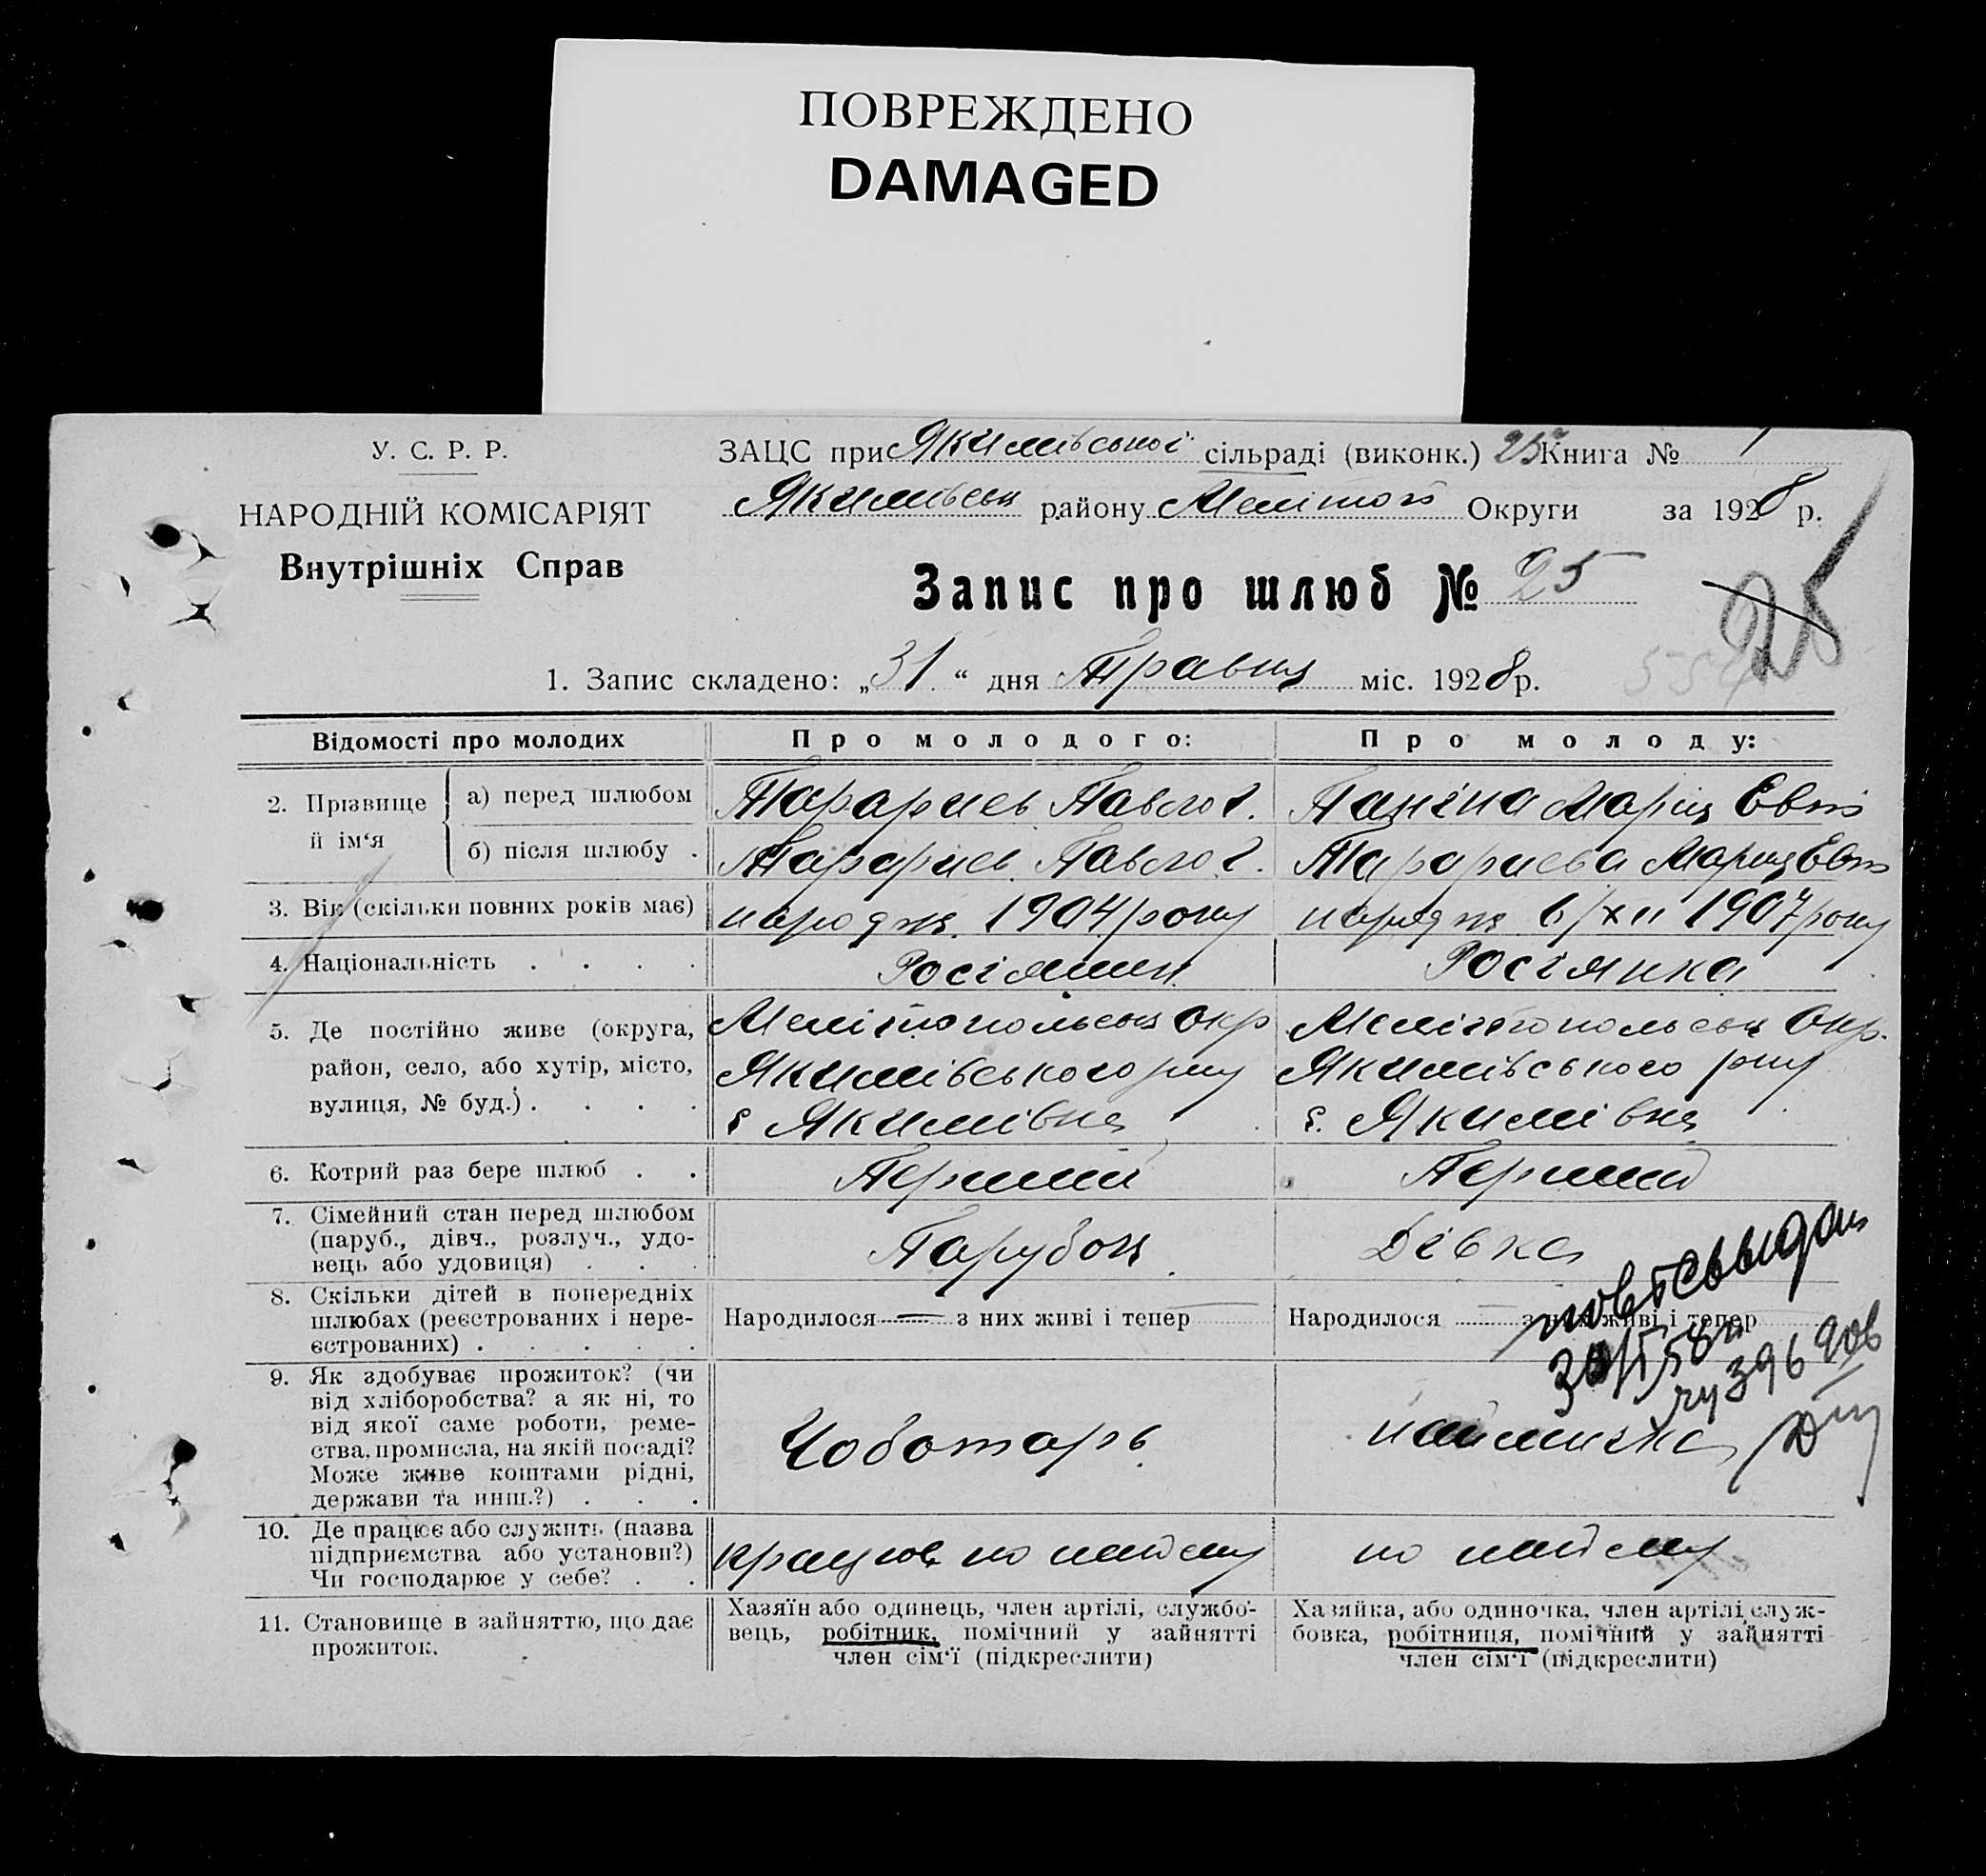 ПОВРЕЖДЕНО
DAMAGED
У. С. Р. Р.
НАРОДНІЙ КОМІСАРІЯТ
Внутрішніх Справ
ЗАЦС при Якимівської сільраді (виконк.) 25 Книга № 1
Якимівськ району Меліто Округи за 1928 р.
Запис про шлюб № 25
25
1. Запис складено: „31“ дня Травня міс. 1928 р.
Відомості про молодих
Про молодого:
Про молоду:
2. Прізвище й ім‘я
а) перед шлюбом
Тарариев Павло г.
Панічна Марія Евт
б) після шлюбу .
Тарариев Павло г.
Тарариева Мария Евт
3. Вік (скільки повних років має)
народж. 1904 року
народж 6/XII 1907 року
4. Національність . . . .
Росіянин
Росіянка
5. Де постійно живе (округа,
район, село, або хутір, місто,
вулиця, № буд.) . . . .
Мелітопольськ Окр
Якимівського рну
с Якимівка
Мелітопольськ Окр.
Якимівського рну
с. Якимівка
6. Котрий раз бере шлюб . .
Перший
Перший
7. Сімейний стан перед шлюбом
(паруб., дівч., розлуч., удо-
вець або удовиця) . . .
Парубок
Дівка
8. Скільки дітей в попередніх
шлюбах (реєстрованих і нере-
єстрованих) . . . . .
Народилося — з них живі і тепер
Народилося — з них живі і тепер
9. Як здобуває прожиток? (чи
від хліборобства? а як ні, то
від якої саме роботи, реме-
ства, промисла, на якій посаді?
Може живе коштами рідні,
держави та инш.?) . . .
Чоботарь
наймичка
10. Де працює або служить (назва
підприємства або установи?)
Чи господарює у себе? . .
працює по найому
по найому
11. Становище в зайняттю, що дає
прожиток.
Хазяїн або одинець, член артілі, службо-
вець, робітник, помічний у зайнятті
член сім‘ї (підкреслити)
Хазяйка, або одиночка, член артілі, служ-
бовка, робітниця, помічний у зайнятті
член сім‘ї (підкреслити)